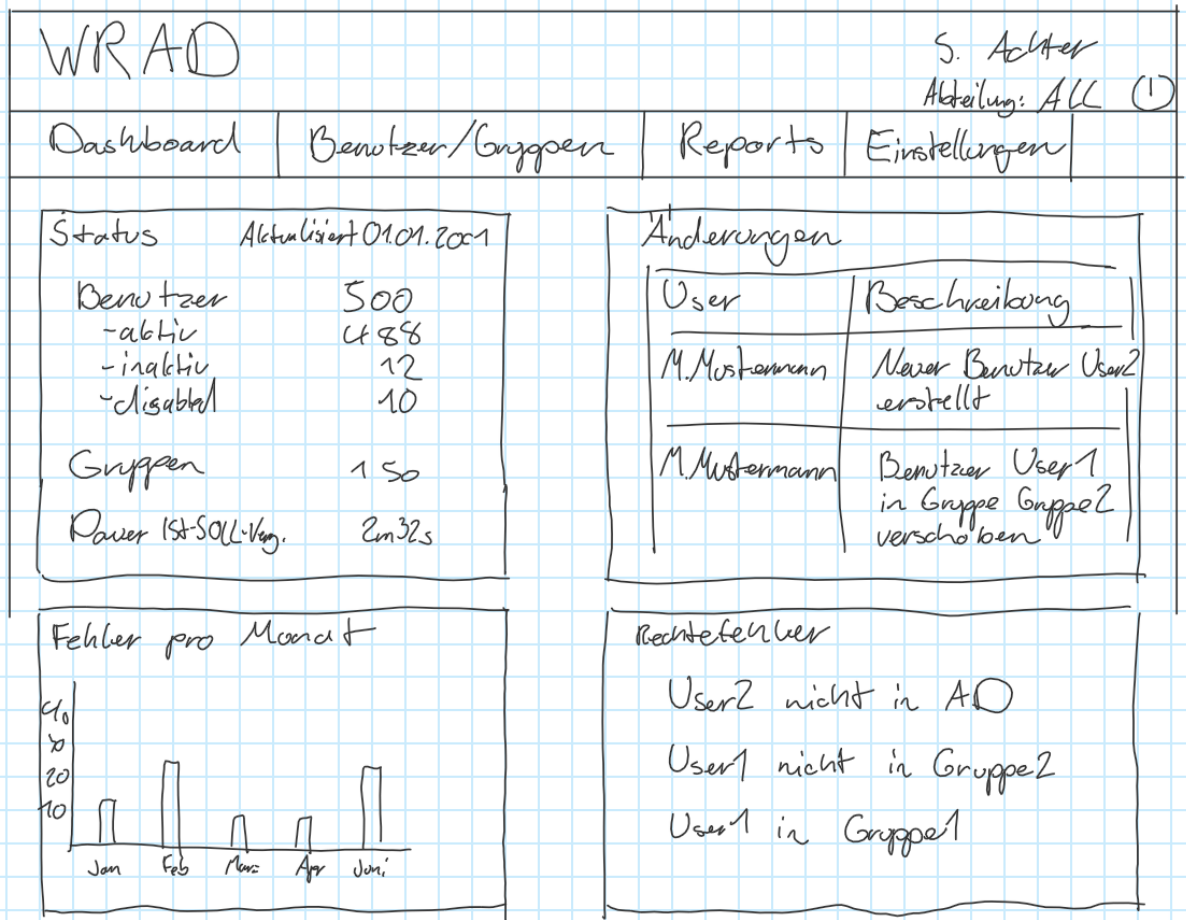 WRAD
S. Achter
Abteilung: ALL
Dashboard
Benutzer/Gruppen
Reports
Einstellungen
Status Aktualisiert 01.01.2001
Benutzer 500
-aktiv 488
-inaktiv 12
-disabled 10
Gruppen 150
Dauer IST-SOLL-Verg. 2m32s
Änderungen
User Beschreibung
M.Mustermann Neuer Benutzer User2
erstellt
M.Mustermann Benutzer User1
in Gruppe Gruppe2
verschoben
Fehler pro Monat
40
30
20
10
Jan Feb März Apr Juni
Rechtefehler
User2 nicht in AD
User1 nicht in Gruppe2
User1 in Gruppe1